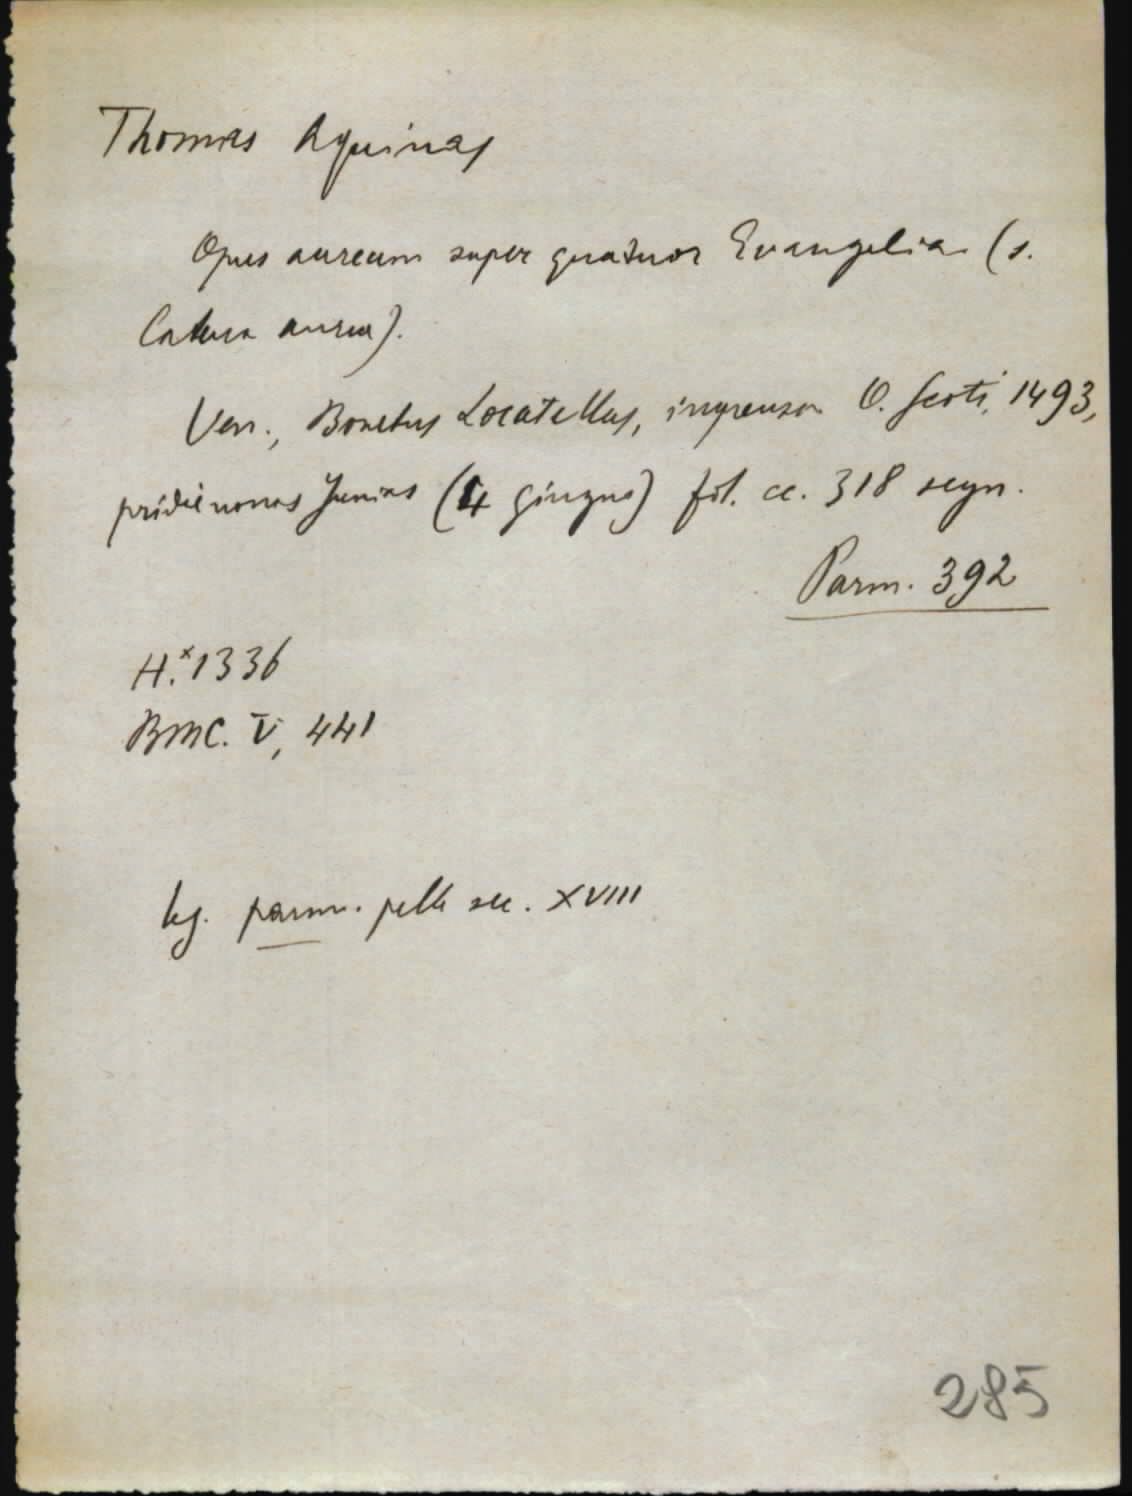 Thomas Aquinas
Opus aureum super quatuor Evangelia (s.
Catena aurea).
Ven., Bonetus Locatellus, impensa O. Scoti, 1493,
pridie nonas Junias (4 giugno) fol. cc. 318 segn.
Parm. 392
H.× 1336
BMC. V, 441
leg. parm. pelle sec. XVIII
285